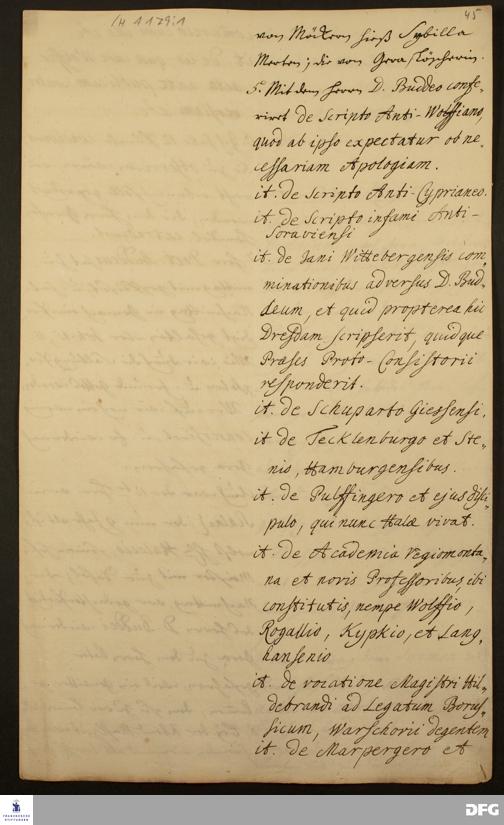 H A 179:1
45
von Möckern hieß Sybilla
Merten; die von Gera Töpcherin.
5. Mit dem Herrn D. Buddeo confe-
riret de scripto Anti-Wolffiano,
quod ab ipso expectatur ob ne-
cessariam Apologiam.
it. de scripto Anti-Cyprianeo.
it. de Scripto infami Anti-
Soraviensi
it. de Jani Wittebergensis com-
minationibus adversus D. Bud-
deum, et quid propterea huc
Dresdam scripserit, quidque
Præses Proto-Consistorii
responderit.
it. de Schuparto Giessensi.
it de Tecklenburgo et Ste-
nio, Hamburgensibus.
it. de Pulffingero et ejus disci-
pulo, qui nunc Halæ vivat.
it. de Academia regiomonta-
na et novis Professoribus, ibi
constitutis, nempe Wolffio,
Rogallio, Kypkio, et Lang-
hansenio
it. de vocatione Magistri Hil-
debrandi ad Legatum Borus-
sicum, Warschovii degentem
it. de Marpergero et
FRANCKESCHE
STIFTUNGEN
DFG